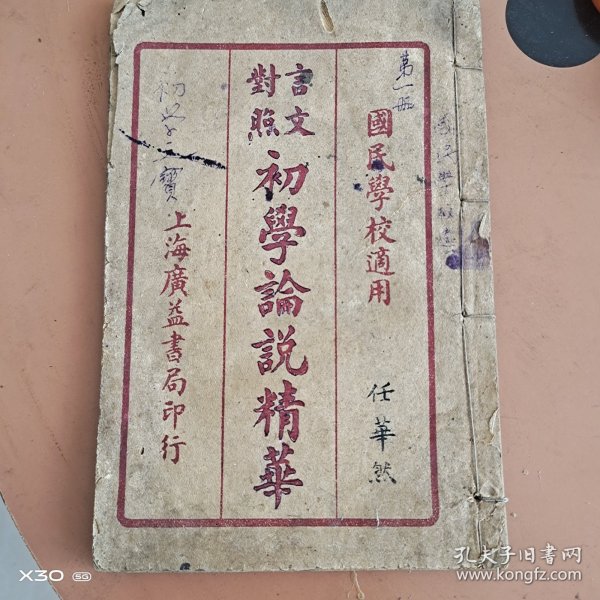 第一册
國民學校適用
任華然
言文
對照
初學論說精華
上海廣益書局印行
初学之寶
X30 5G
孔夫子旧书网
www.kongfz.com